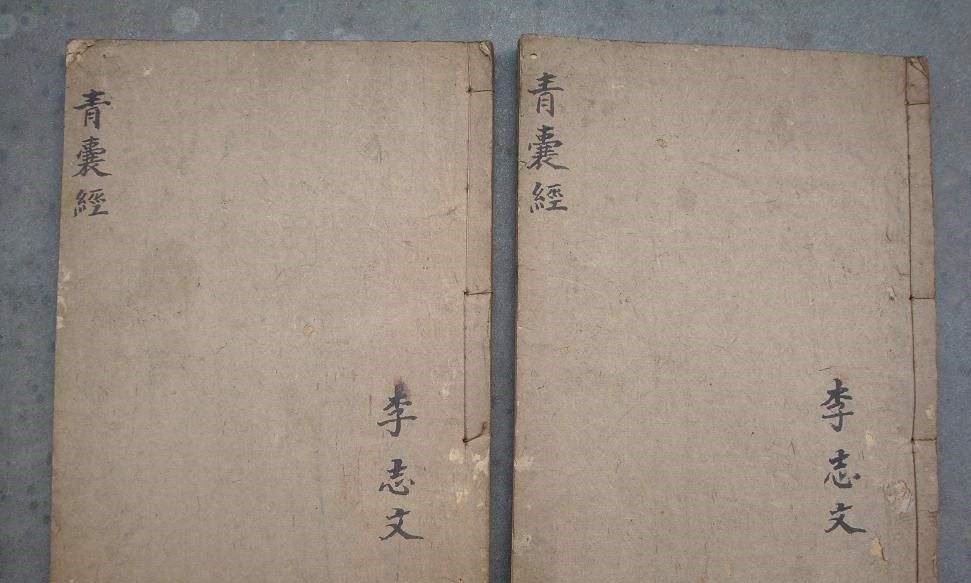 青囊經
李志文
青囊經
李志文